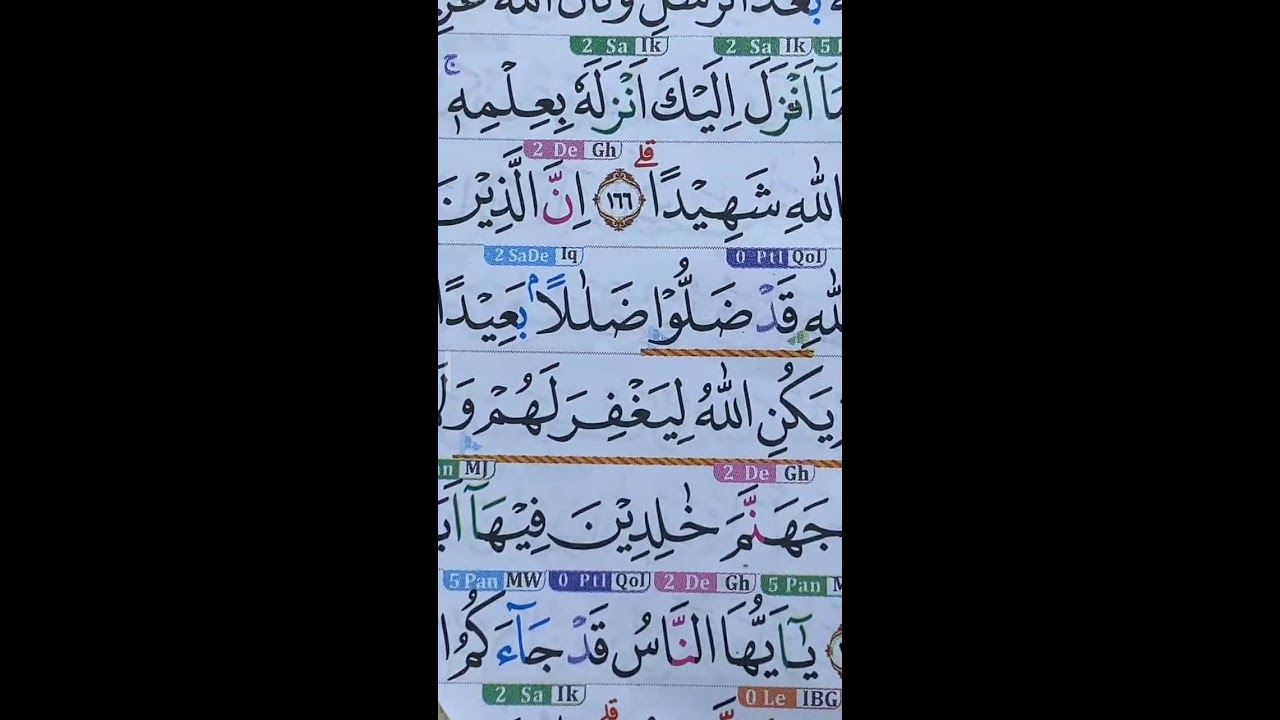 بَعْدَ الرُّسُلِ وَكَانَ اللّٰهُ
2 Sa Ik 2 Sa Ik 5
اَنْزَلَ اِلَيْكَ اَنْزَلَهٗ بِعِلْمِهٖۚ
2 De Gh
اللّٰهِ شَهِيْدًاۗ ١٦٦ اِنَّ الَّذِيْنَ
2 SaDe Iq 0 Ptl Qol
قَدْ ضَلُّوْا ضَلٰلًاۢ بَعِيْدًا
يَكُنِ اللّٰهُ لِيَغْفِرَ لَهُمْ وَلَا
MJ 2 De Gh
جَهَنَّمَ خٰلِدِيْنَ فِيْهَآ
5 Pan MW 0 Ptl Qol 2 De Gh 5 Pan
يٰٓاَيُّهَا النَّاسُ قَدْ جَاۤءَكُمُ
2 Sa Ik 0 Le IBG